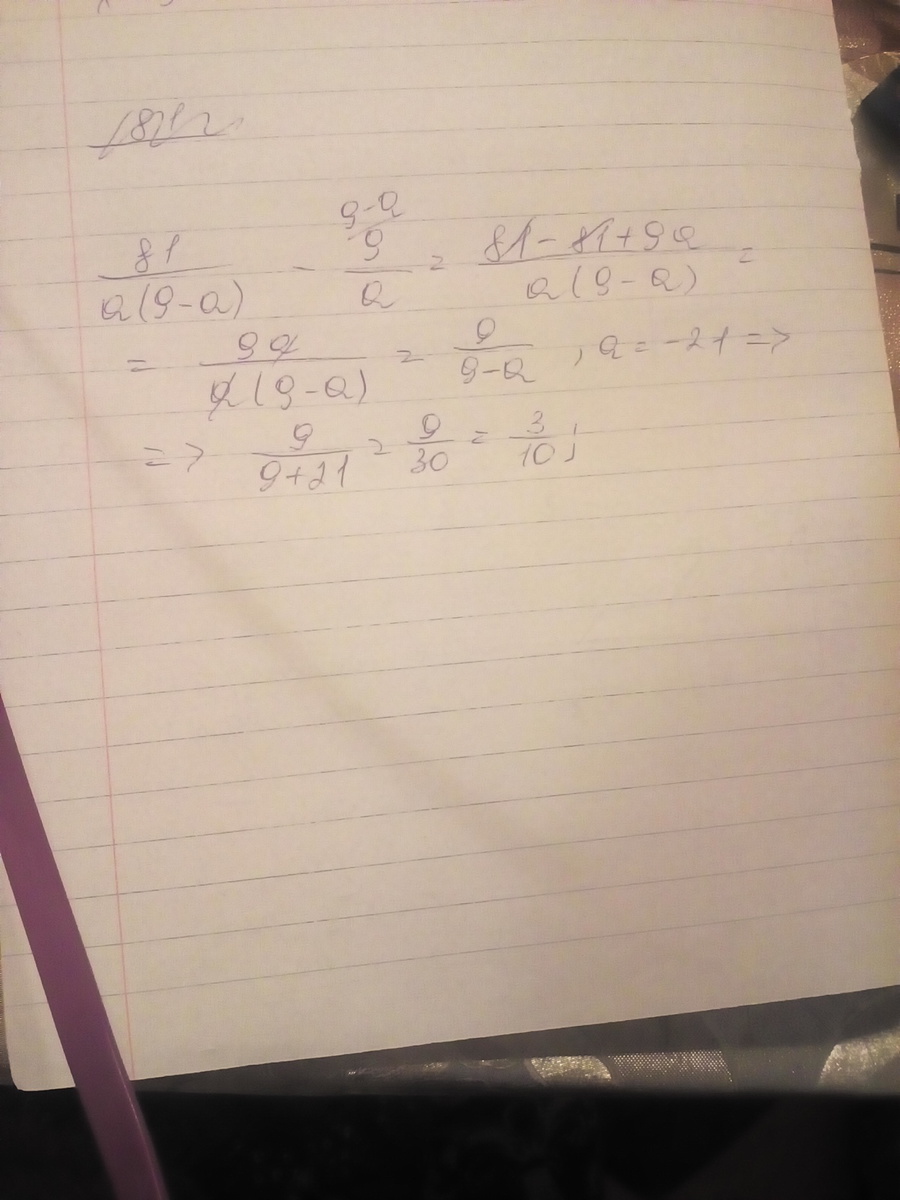 81/(a(9-a)) - 9/a ^(9-a) = (81-81+9a)/(a(9-a)) =
= 9a/(a(9-a)) = 9/(9-a) , a = -21 =>
=> 9/(9+21) = 9/30 = 3/10;